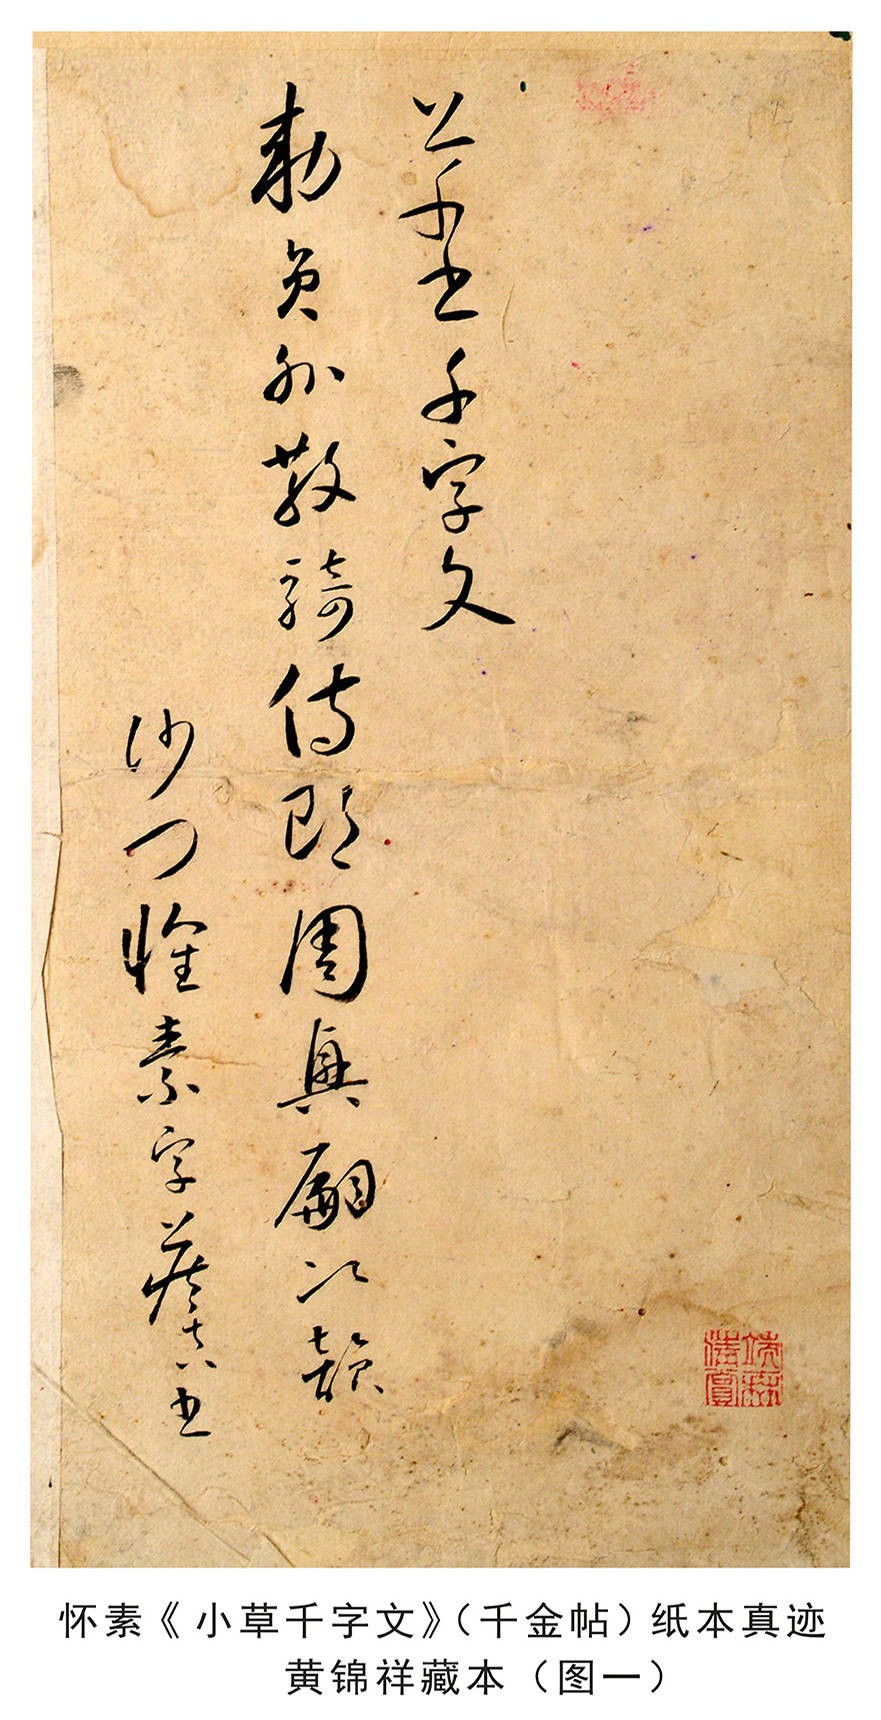 草書千字文
勅員外散騎侍郎周興嗣次韻
沙門懷素字藏真書
怀素《小草千字文》（千金帖）纸本真迹
黄锦祥藏本（图一）